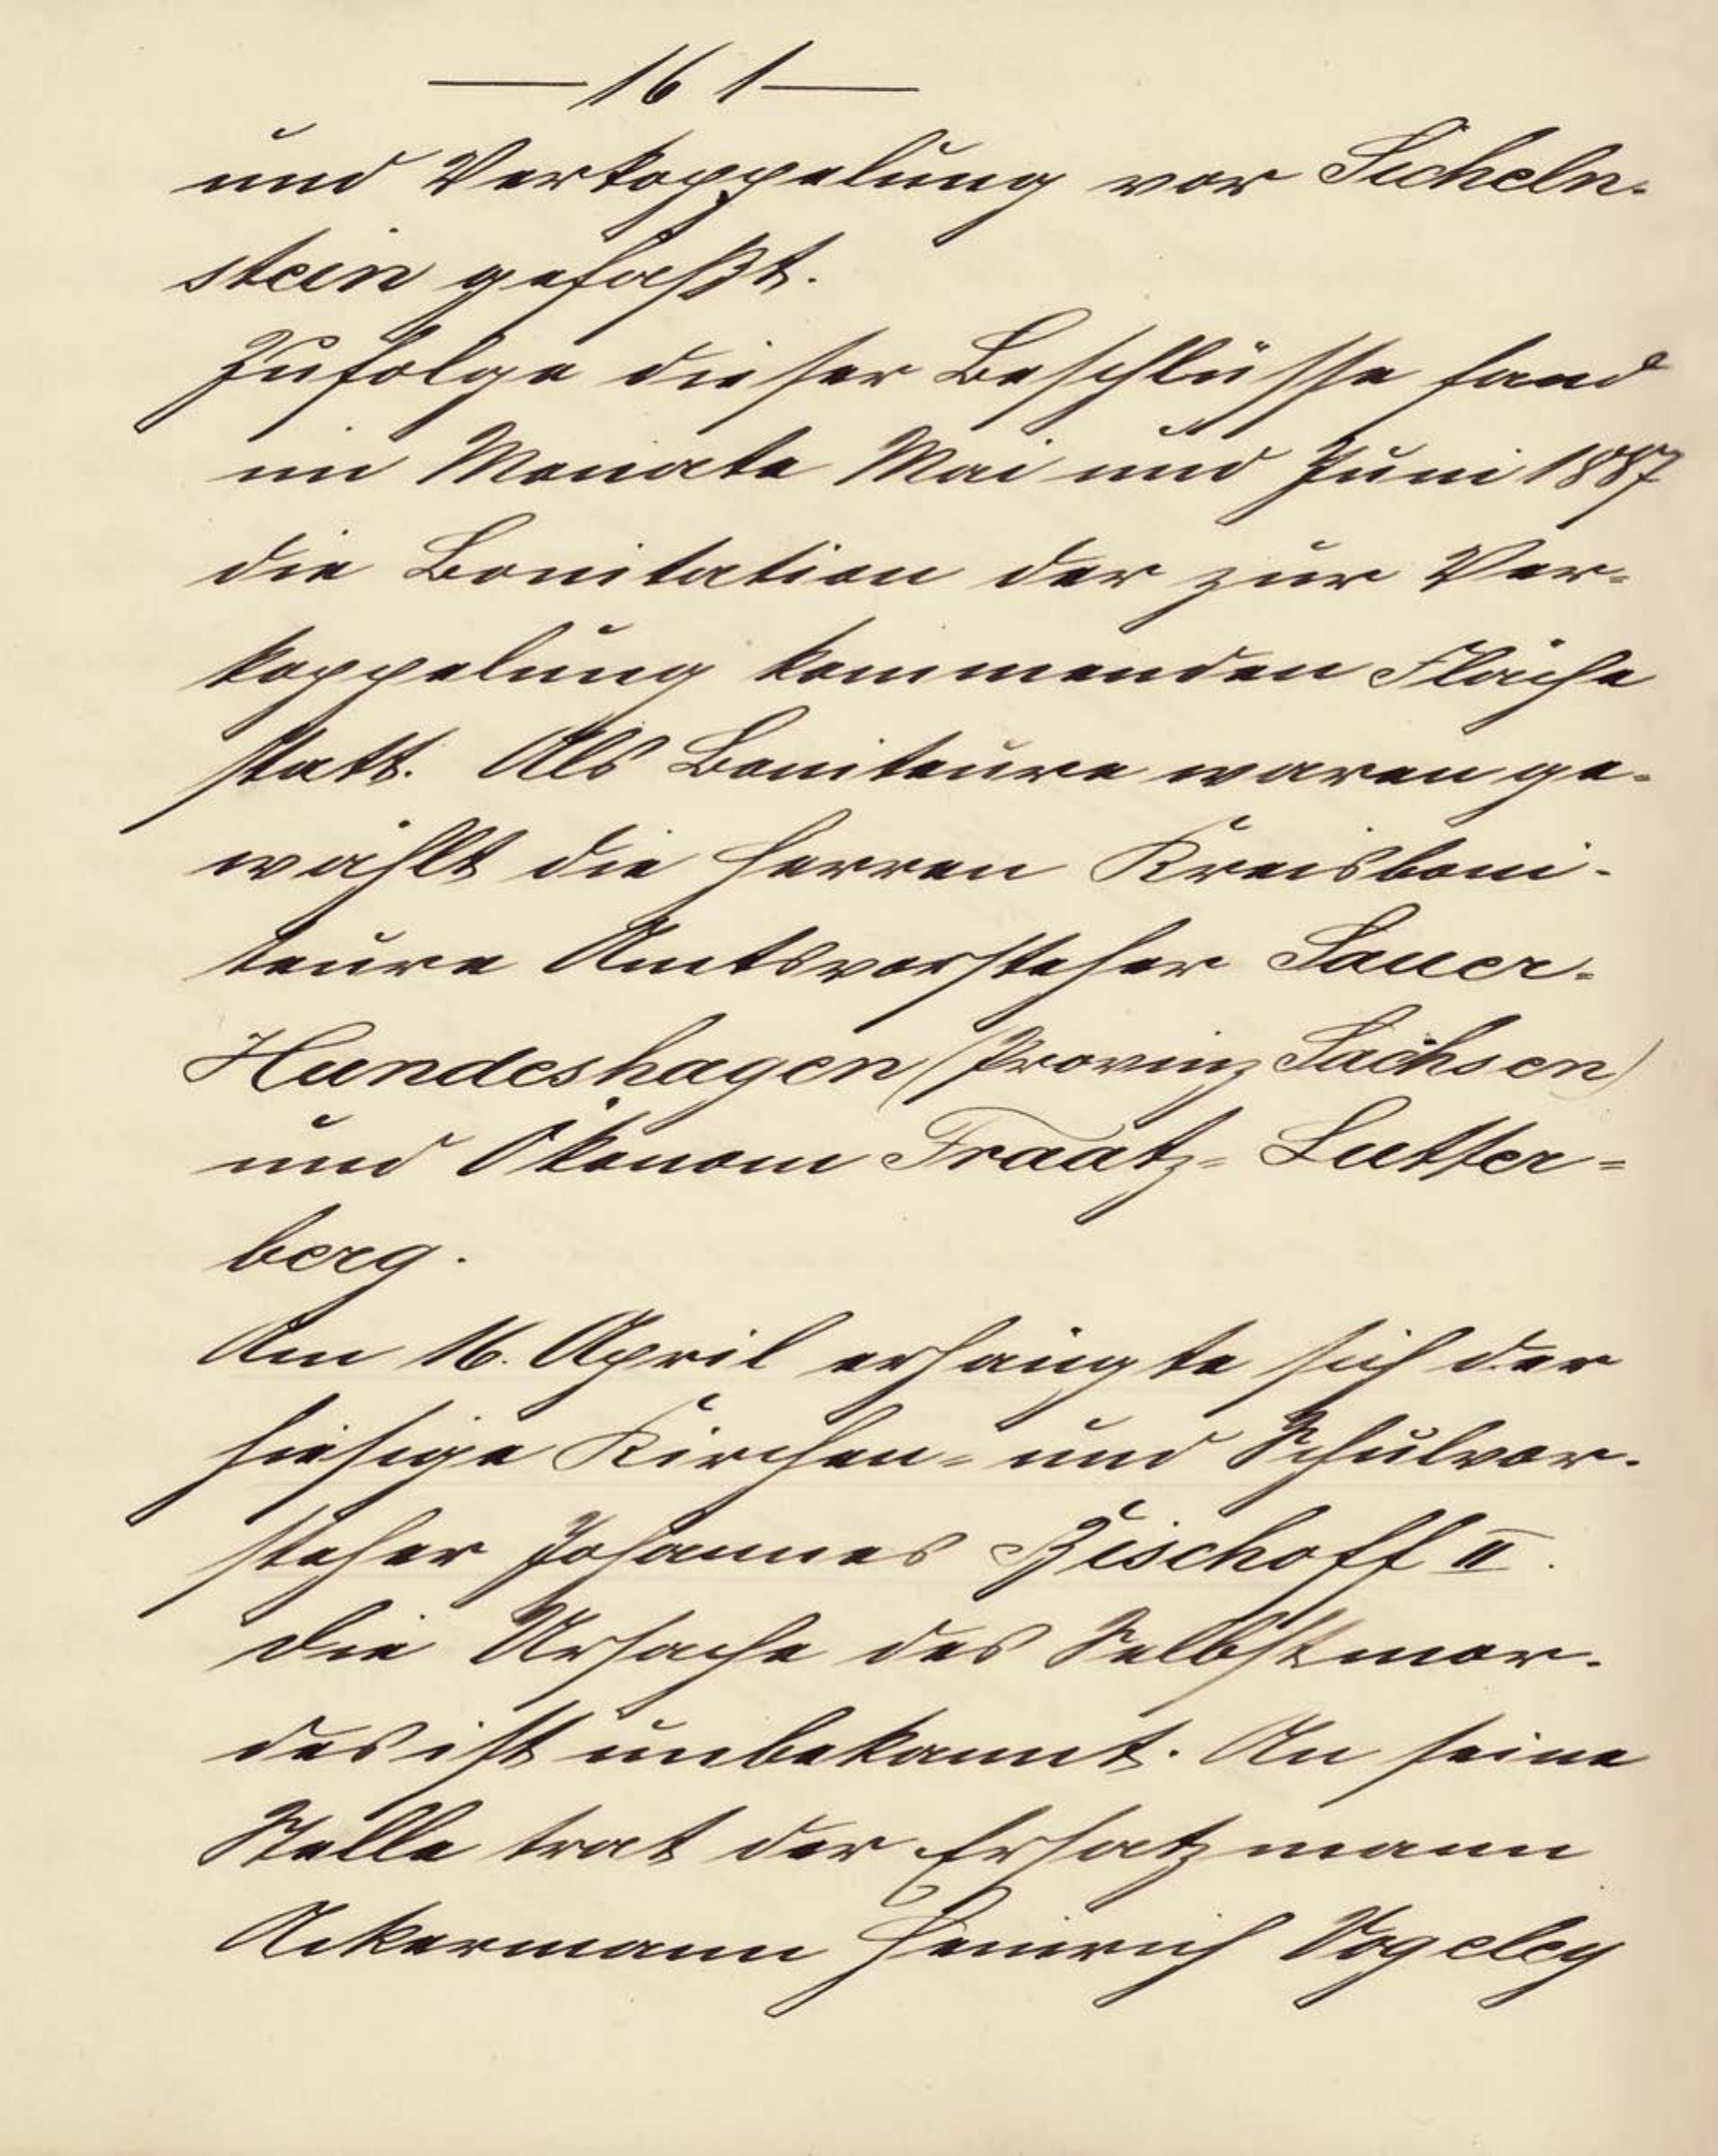 — 161 —
und Verkoppelung vor Sicheln-
stein gefaßt.
Zufolge dieser Beschlüsse fand
im Monate Mai und Juni 1887
die Bonitation der zur Ver-
koppelung kommenden Fläche
statt. Als Boniteure waren ge-
wählt die Herren Kreisboni-
teure Amtsvorsteher Sauer-
Hundeshagen (Provinz Sachsen)
und Ökonom Fraatz- Lutter-
berg.
Am 16. April erhängte sich der
hiesige Kirchen- und Schulvor-
steher Johannes Bischoff II.
Die Ursache des Selbstmor-
des ist unbekannt. An seine
Stelle trat der Ersatzmann
Ackermann Heinrich Vogeley